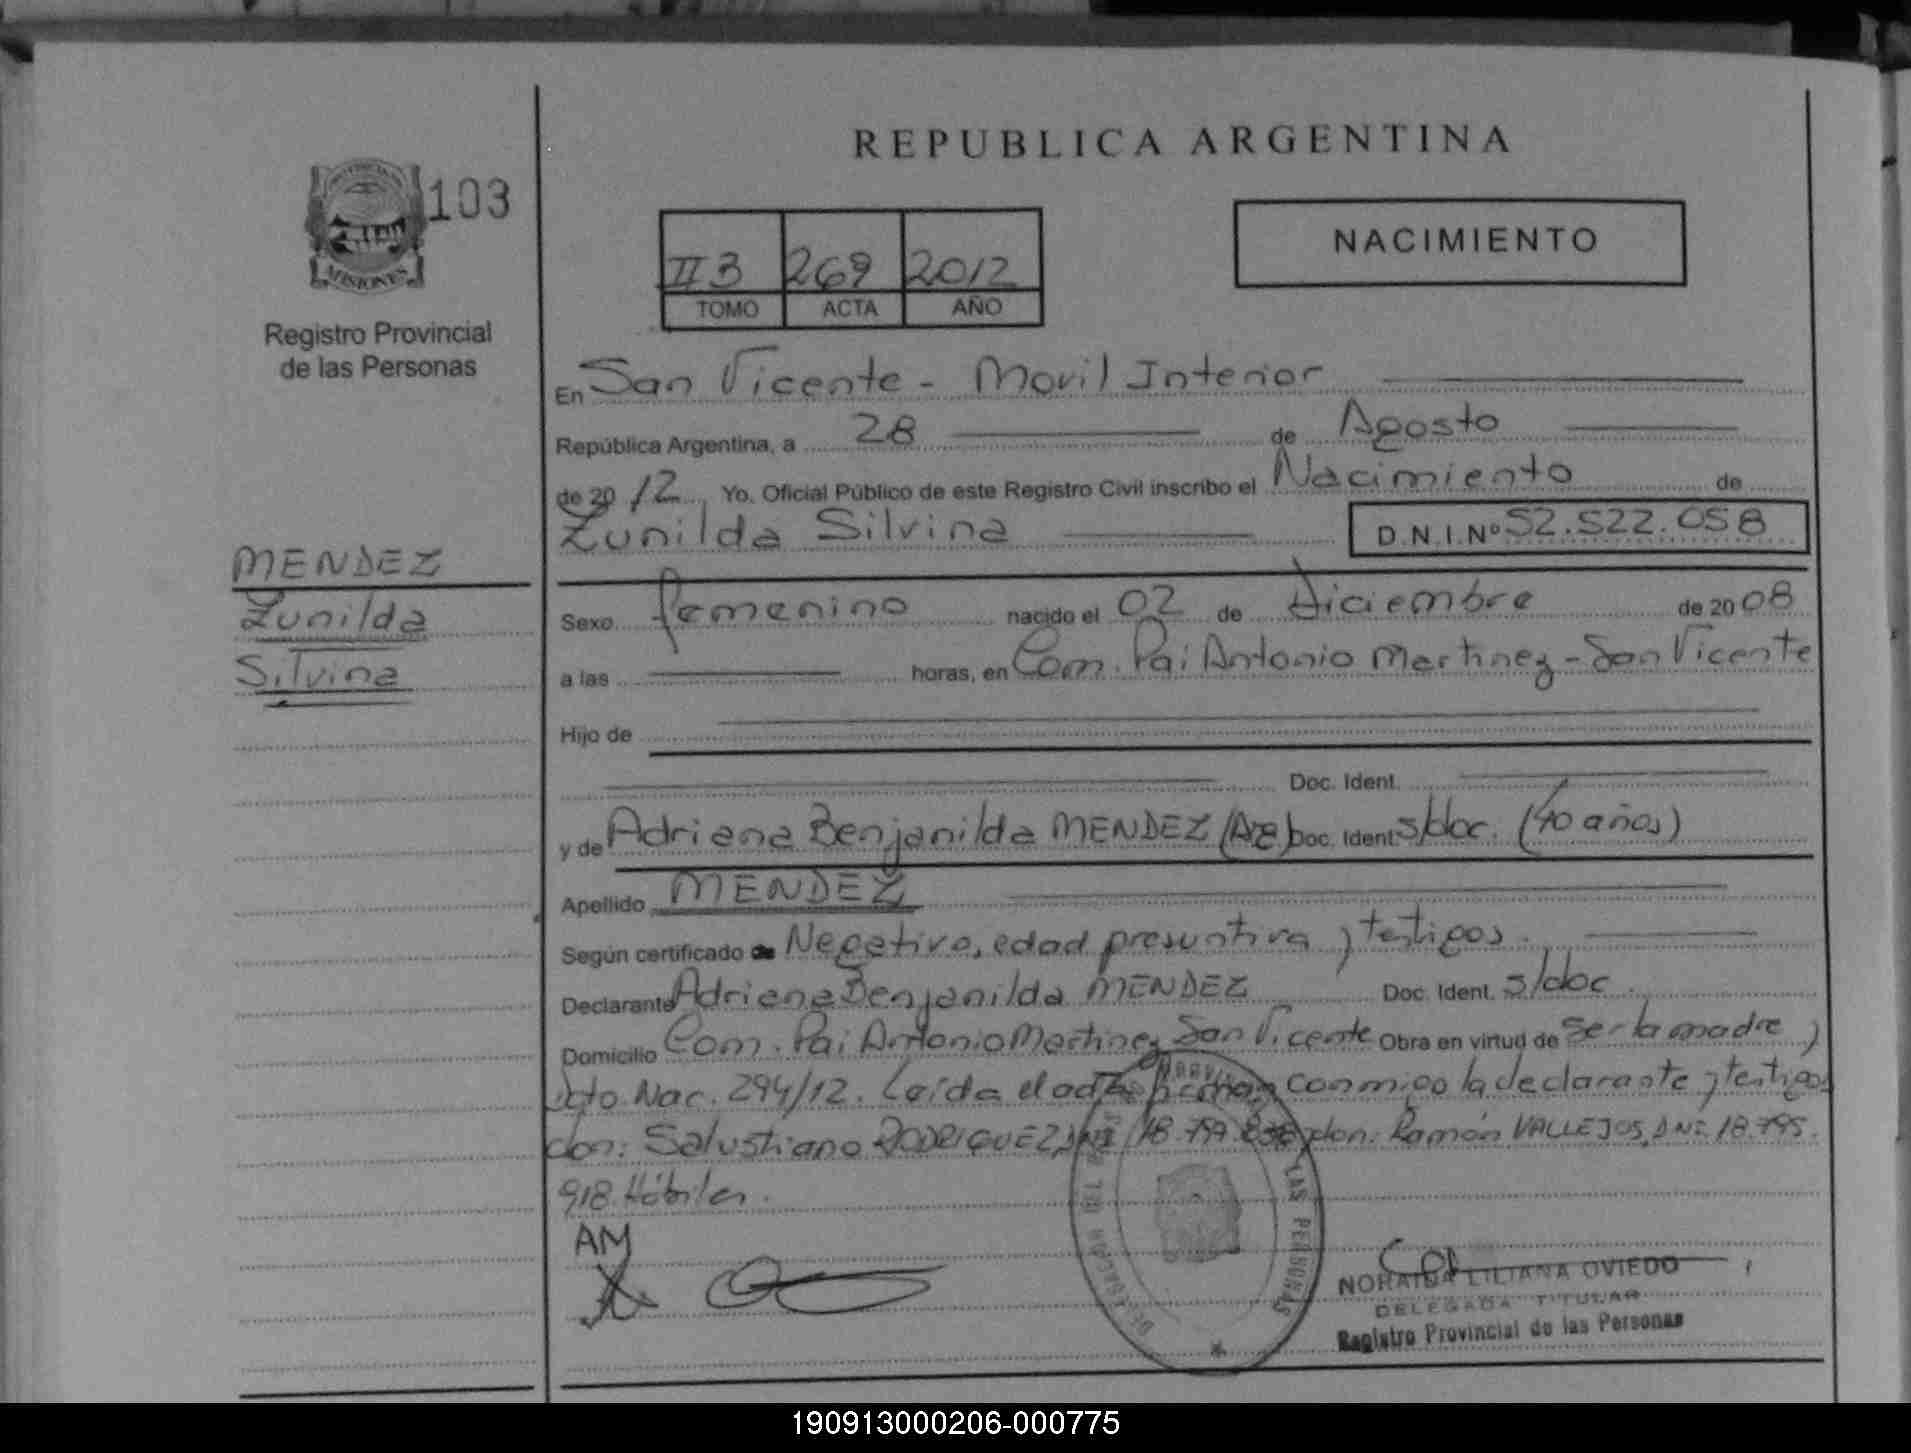 REPUBLICA ARGENTINA
103
MISIONES
Registro Provincial
de las Personas
II 3 269 2012
TOMO ACTA AÑO
NACIMIENTO
En San Vicente - Movil Interior
República Argentina, a 28 de Agosto
de 2012 Yo, Oficial Público de este Registro Civil inscribo el Nacimiento de
Zunilda Silvina D.N.I.Nº 52.522.058
MENDEZ
Zunilda
Silvina
Sexo femenino nacido el 02 de diciembre de 2008
a las horas, en Com. Pai Antonio Martinez - San Vicente
Hijo de
Doc. Ident.
y de Adriana Benjanilda MENDEZ (Arg) Doc. Ident. s/doc. (40 años)
Apellido MENDEZ
Según certificado de Negativo, edad presuntiva y testigos.
Declarante Adriana Benjanilda MENDEZ Doc. Ident. s/doc.
Domicilio Com. Pai Antonio Martinez San Vicente Obra en virtud de ser la madre y
Dcto Nac. 294/12. Leída el acta firman conmigo la declarante y testigos
don: Salustiano RODRIGUEZ, DNI 18. don: Ramón VALLEJOS, DNI 18.795.
918. Hábiles.
AM
LAS PERSONAS
NORAIDA LILIANA OVIEDO
DELEGADA TITULAR
Registro Provincial de las Personas
190913000206-000775